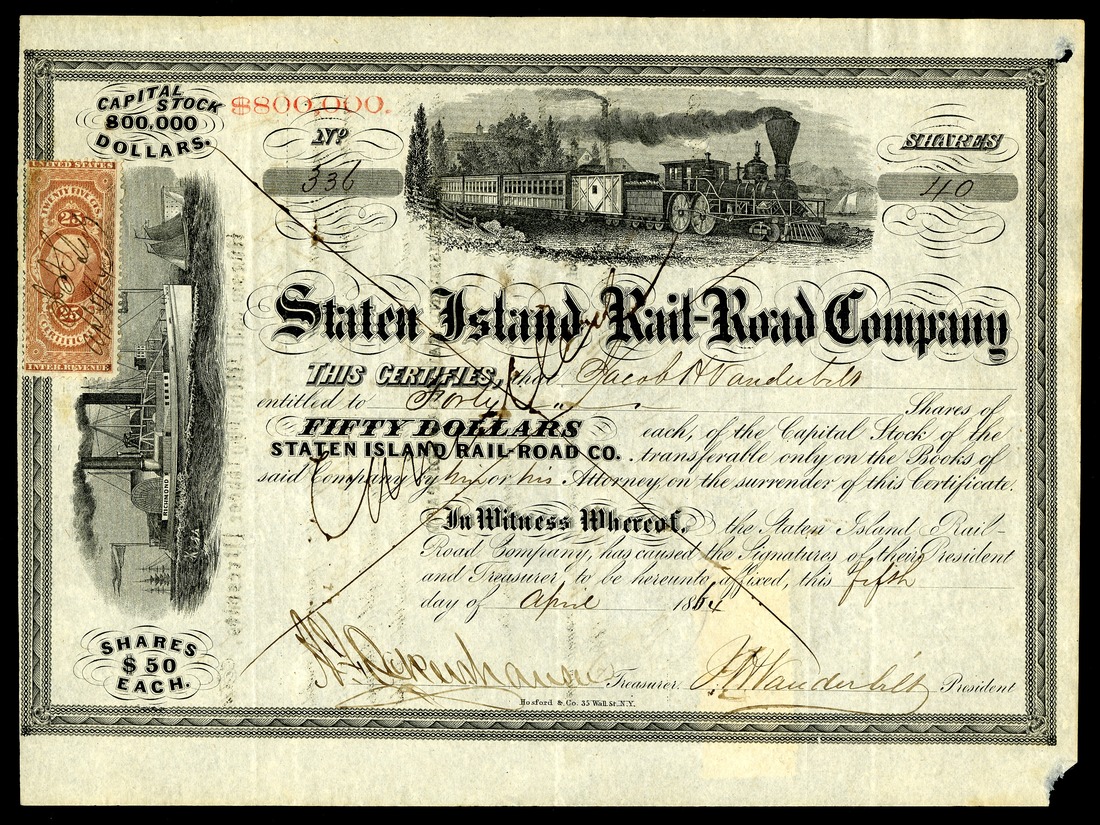 CAPITAL
STOCK
800,000
DOLLARS.
$800,000.
No
336
SHARES
40
UNITED STATES
TWENTY FIVE CTS.
25 25
CERTIFICATE
INTER. REVENUE
RICHMOND
Staten Island Rail-Road Company
THIS CERTIFIES, that Jacob H Vanderbilt
entitled to Forty Shares of
FIFTY DOLLARS each, of the Capital Stock of the
STATEN ISLAND RAIL-ROAD CO. transferable only on the Books of
said Company by him or his Attorney, on the surrender of this Certificate.
Cancelled
In Witness Whereof, the Staten Island Rail-
Road Company, has caused the Signatures of their President
and Treasurer, to be hereunto affixed, this fifth
day of April 1864
SHARES
$50
EACH.
Treasurer. J H Vanderbilt President
Hosford & Co. 35 Wall St. N.Y.